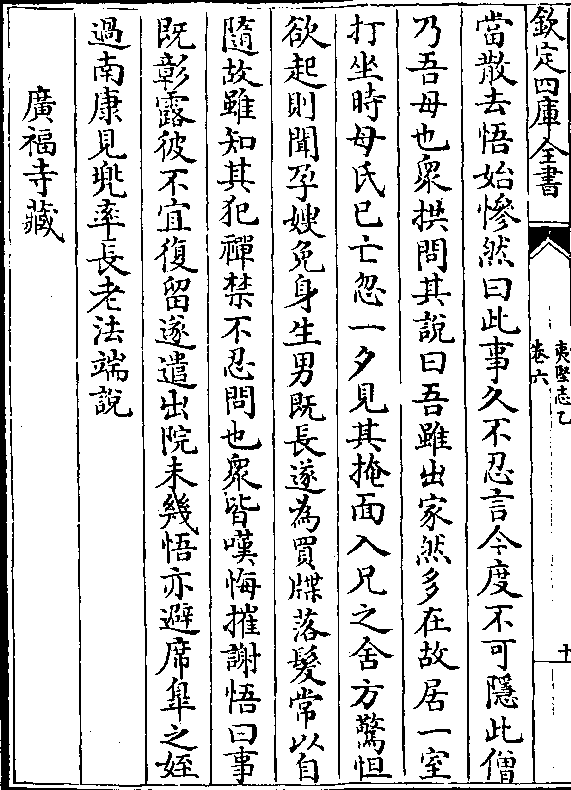 欽定四庫全書
夷堅志乙
卷六
十
當散去悟始慘然曰此事久不忍言今度不可隱此僧
乃吾母也衆拱問其說曰吾雖出家然多在故居一室
打坐時母氏已亡忽一夕見其掩面入兄之舍方驚怛
欲起則聞孕嫂免身生男既長遂為買牒落髮常以自
隨故雖知其犯禪禁不忍問也衆皆嘆悔摧謝悟曰事
既彰露彼不宜復留遂遣出院未幾悟亦避席臯之姪
過南康見兠率長老法端說
廣福寺藏